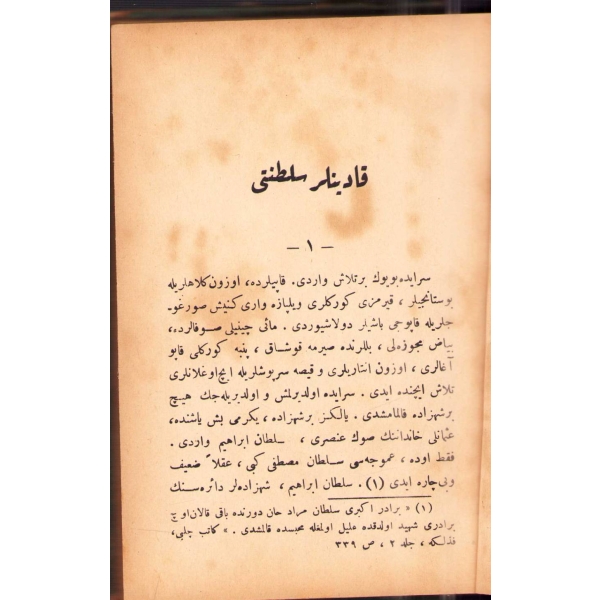 قادینلر سلطنتی
— ۱ —
سرایده بویوك بر تلاش واردی. قاپیلرده، اوزون كلاهلریله
بوستانجیلر، قیرمزی كوركلری ویلپازه واری كنیش صورغو-
جلریله قاپوجی باشیلر دولاشیوردی. مائی چینیلی صوفالرده،
بیاض مجوزه‌لی، بللرنده صیرمه قوشاق، پنبه كوركلی قاپو
آغالری، اوزون انتاریلری و قیصه سرپوشلریله ایچ اوغلانلری
تلاش ایچنده ایدی. سرایده اولدیرلمش و اولدیریله‌جك هیچ
بر شهزاده قالمامشدی. یالكز بر شهزاده، یكرمی بش یاشنده،
عثمانلی خاندانینك صوك عنصری، سلطان ابراهیم واردی.
فقط اوده، عموجه‌سی سلطان مصطفی كبی، عقلاً ضعیف
و بی چاره ایدی (۱). سلطان ابراهیم، شهزاده‌لر دائره‌سنك
(۱) « برادر اكبری سلطان مراد خان دورنده باقی قالان اوچ
برادری شهید اولدقده علیل اولمغله محبسده قالمشدی. » كاتب چلبی،
فذلكه، جلد ۲، ص ۳۳۹